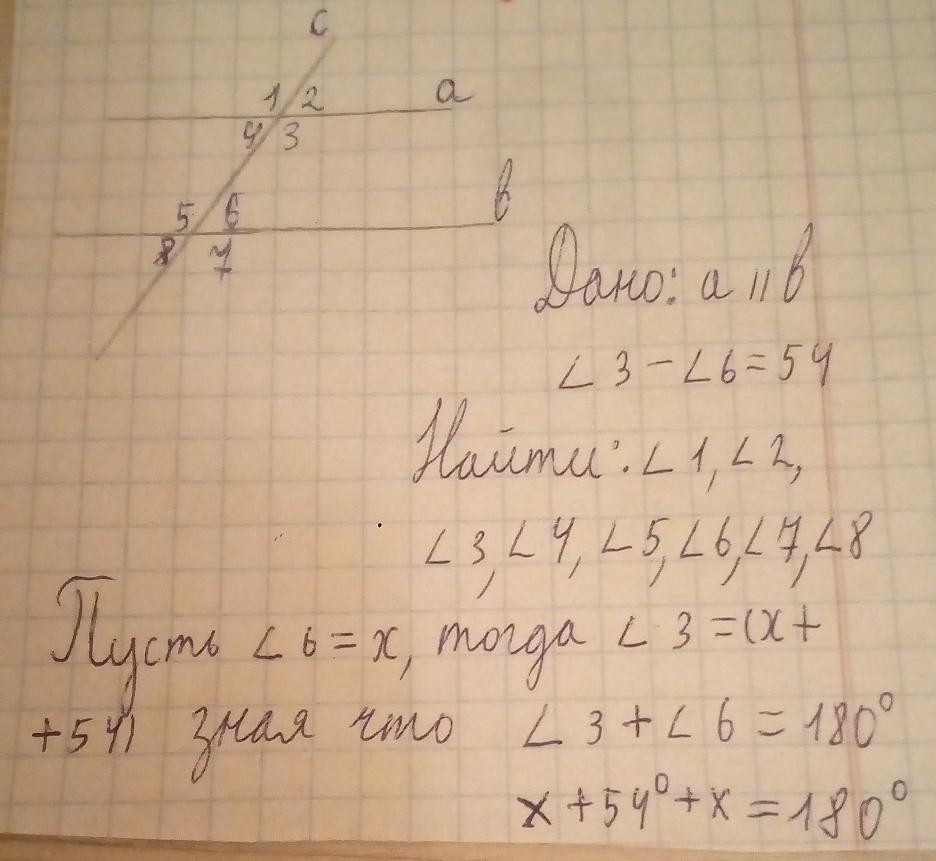 c
1 2 a
4 3
5 6 в
8 7
Дано: a || в
∠3 - ∠6 = 54
Найти: ∠1, ∠2,
∠3, ∠4, ∠5, ∠6, ∠7, ∠8
Пусть ∠6 = x, тогда ∠3 = (x +
+ 54) зная что ∠3 + ∠6 = 180°
x + 54° + x = 180°